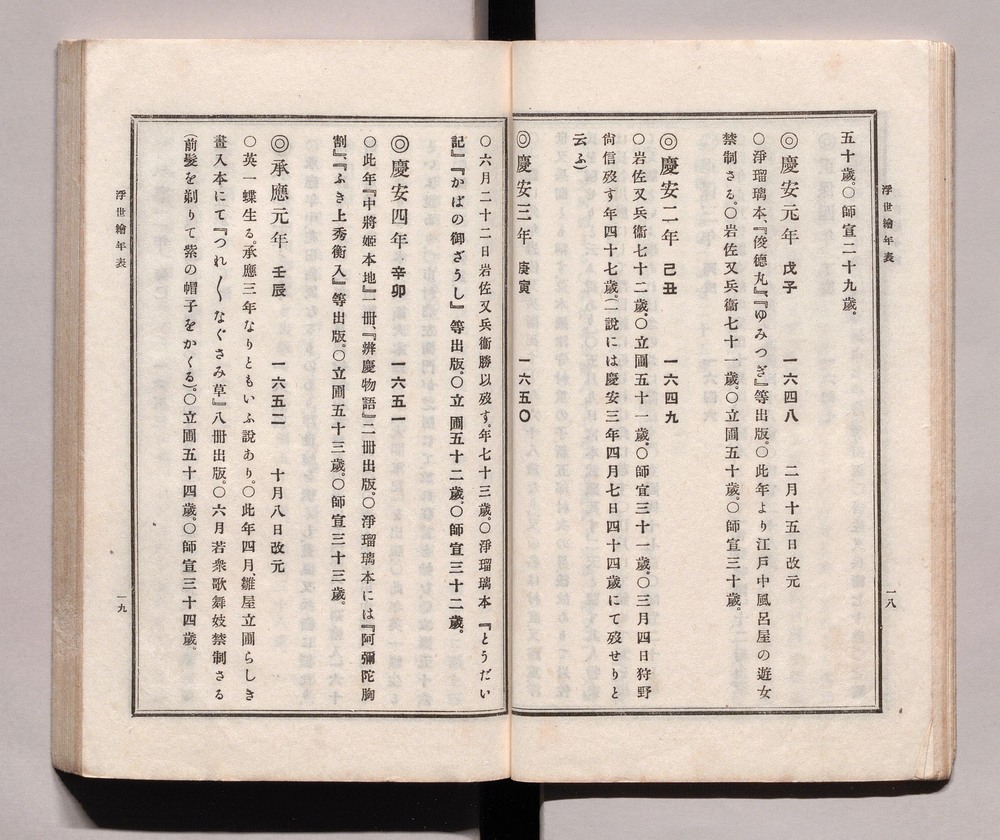 浮世繪年表
一八
五十歲。〇師宣二十九歲。
◎慶安元年 戊子 一六四八 二月十五日改元
〇淨瑠璃本、『俊德丸』『ゆみつぎ』等出版。〇此年より江戸中風呂屋の遊女
禁制さる。〇岩佐又兵衞七十一歲。〇立圃五十歲。〇師宣三十歲。
◎慶安二年 己丑 一六四九
〇岩佐又兵衞七十二歲。〇立圃五十一歲。〇師宣三十一歲。〇三月四日狩野
尙信歿す年四十七歲。(一說には慶安三年四月七日四十四歲にて歿せりと
云ふ)
◎慶安三年 庚寅 一六五〇
〇六月二十二日岩佐又兵衞勝以歿す。年七十三歲。〇淨瑠璃本『とうだい
記』『かばの御ざうし』等出版。〇立圃五十二歲。〇師宣三十二歲。
◎慶安四年 辛卯 一六五一
〇此年『中將姬本地』一册、『辨慶物語』二册出版。〇淨瑠璃本には『阿彌陀胸
割』、『ふき上秀衡入』等出版。〇立圃五十三歲。〇師宣三十三歲。
◎承應元年 壬辰 一六五二 十月八日改元
〇英一蝶生る。承應三年なりともいふ說あり。〇此年四月、雛屋立圃らしき
畫入本にて『つれ〱なぐさみ草』八册出版。〇六月若衆歌舞妓禁制さる
(前髮を剃りて紫の帽子をかくる)。〇立圃五十四歲。〇師宣三十四歲。
浮世繪年表
一九